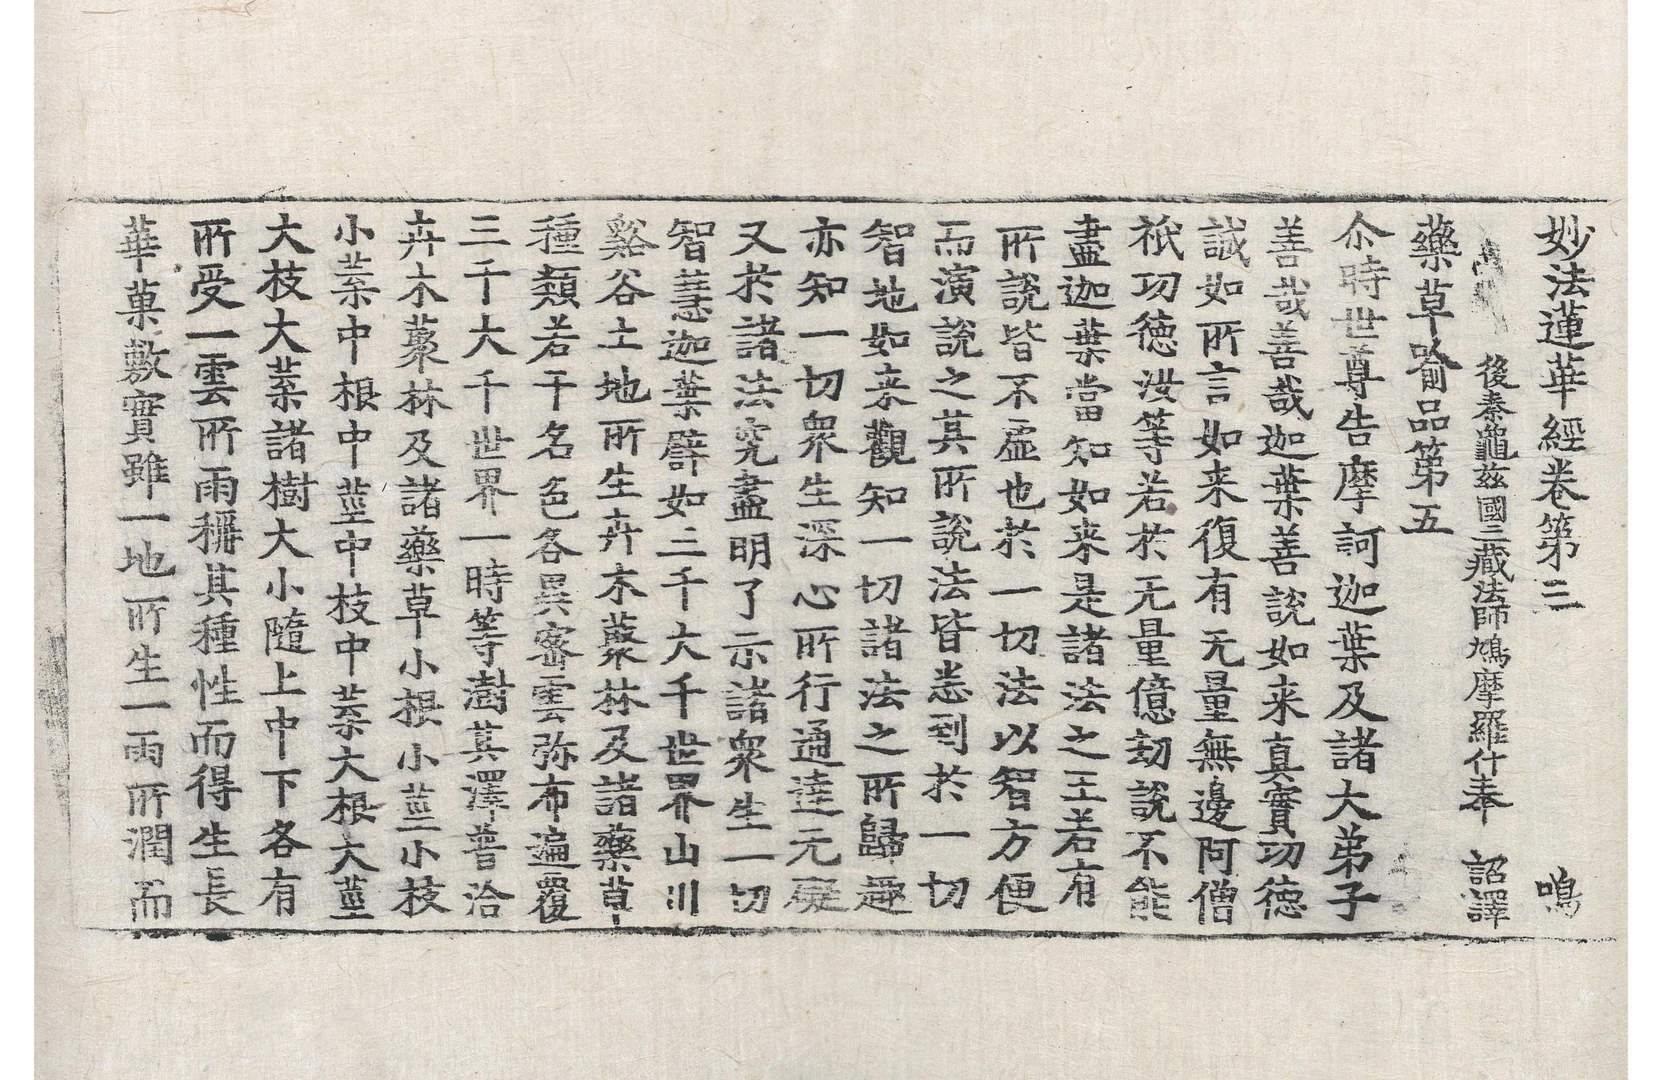 妙法蓮華經卷第三 鳴
後秦龜茲國三藏法師鳩摩羅什奉 詔譯
藥草喩品第五
尒時世尊告摩訶迦葉及諸大弟子
善哉善哉迦葉善說如来真實功德
誠如所言如来復有无量無邊阿僧
祇功德汝等若於无量億劫說不能
盡迦葉當知如来是諸法之王若有
所說皆不虛也於一切法以智方便
而演說之其所說法皆悉到於一切
智地如来觀知一切諸法之所歸趣
亦知一切衆生深心所行通達无礙
又於諸法究盡明了示諸衆生一切
智慧迦葉譬如三千大千世界山川
谿谷土地所生卉木藂林及諸藥草
種類若干名色各異密雲弥布遍覆
三千大千世界一時等澍其澤普洽
卉木藂林及諸藥草小根小莖小枝
小葉中根中莖中枝中葉大根大莖
大枝大葉諸樹大小隨上中下各有
所受一雲所雨稱其種性而得生長
華菓敷實雖一地所生一雨所潤而